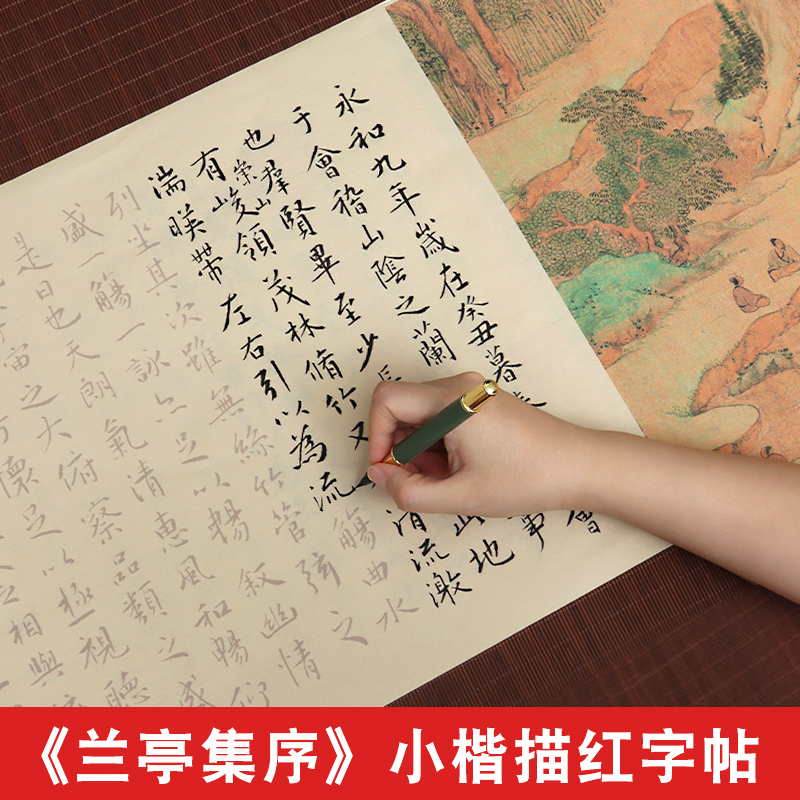 永和九年歲在癸丑暮會
于會稽山陰之蘭事
也羣賢畢至少長此地
有崇山峻領茂林脩竹又清流激
湍暎帶左右引以為流觴曲水
列坐其次雖無絲竹管弦之
盛一觴一詠亦足以暢叙幽情
是日也天朗氣清惠風和暢仰
宙之大俯察品類之盛
懷足以極視聽
相與
《兰亭集序》小楷描红字帖